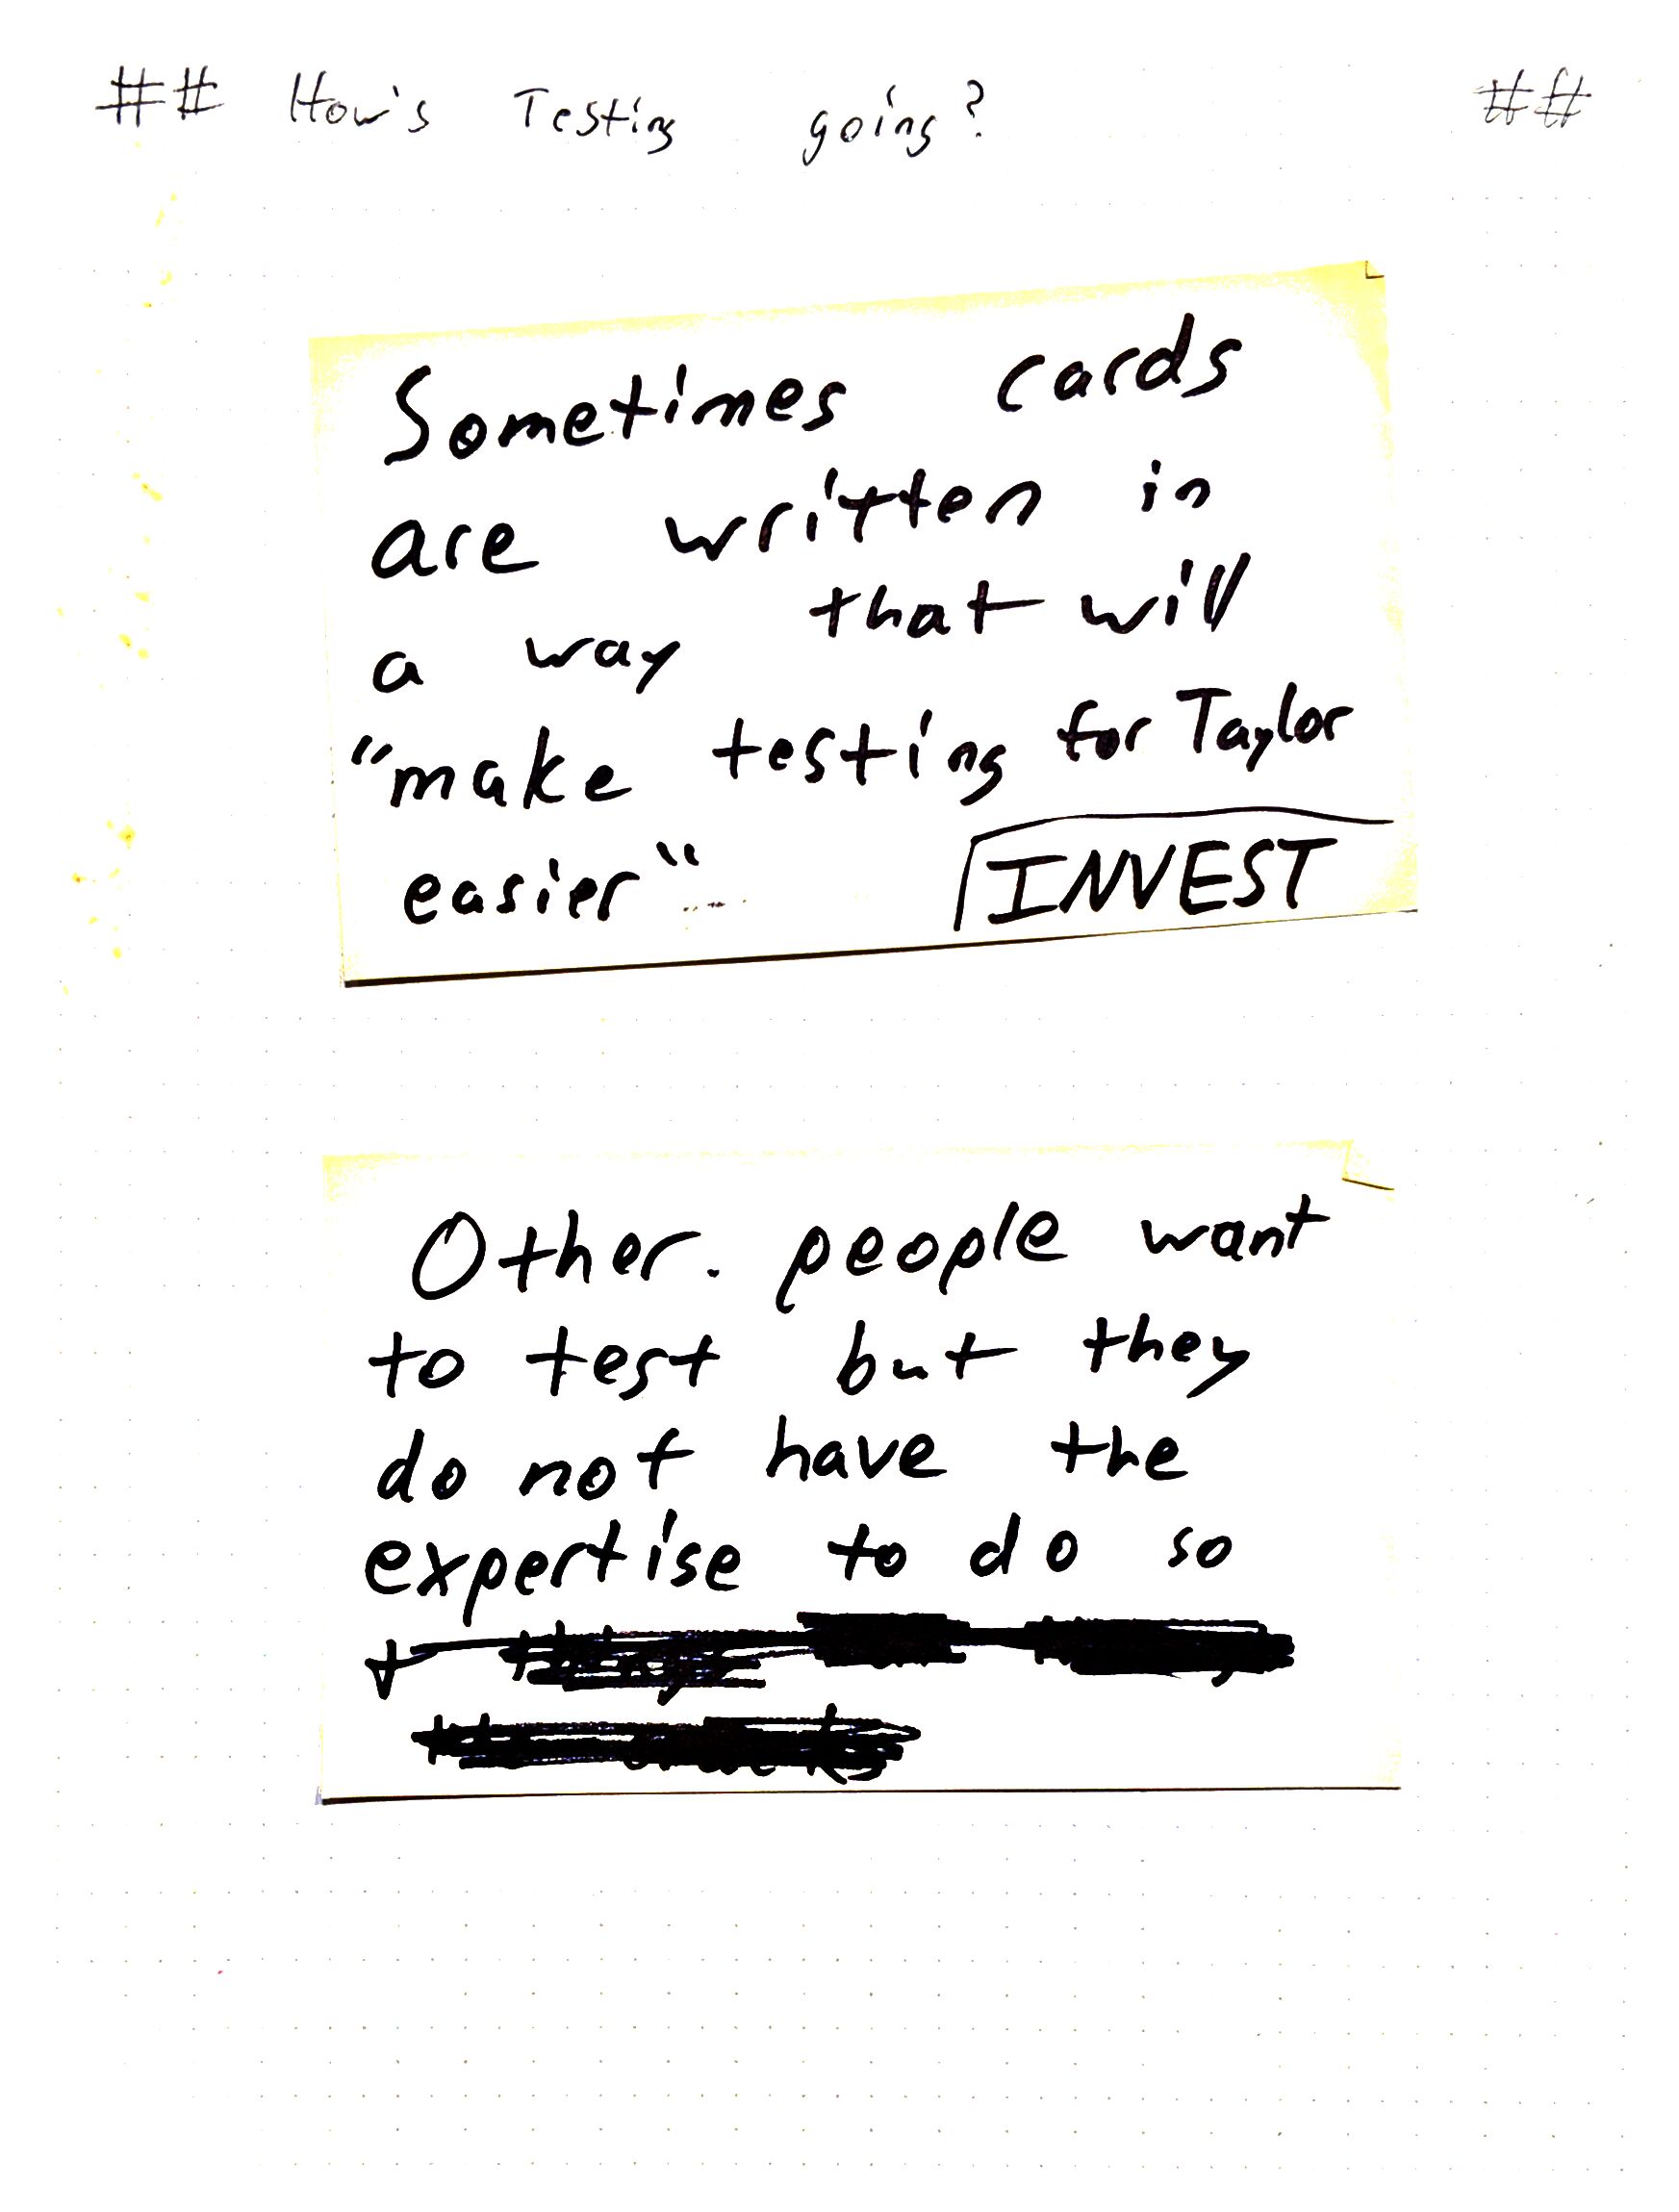 ## How's Testing going? ##
Sometimes cards
are written in
a way that will
"make testing for Taylor
easier"
INVEST
Other. people want
to test but they
do not have the
expertise to do so